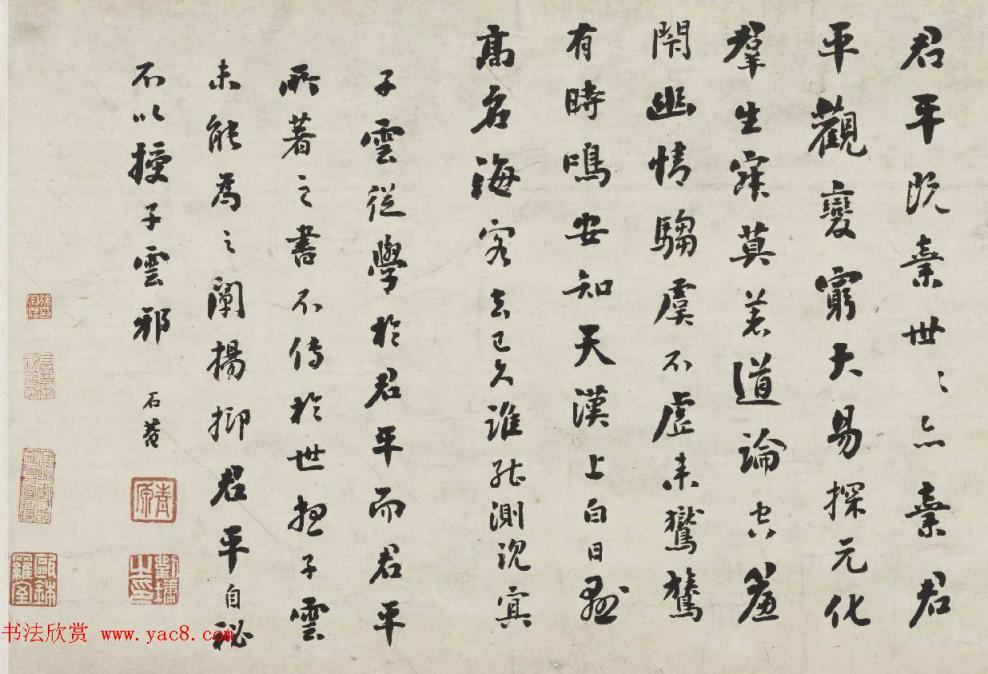 君平既棄世世亦棄君
平觀變窮大易探元化
羣生寂莫著道論空簾
閉幽情騶虞不虛來鸑鷟
有時鳴安知天漢上白日懸
高名海客去已久誰能測沉冥
子雲從學於君平而君平
所著之書不傳於世抑子雲
未能為之闡揚抑君平自秘
不以授子雲邪
石菴
劉墉之印
書法欣赏 www.yac8.com